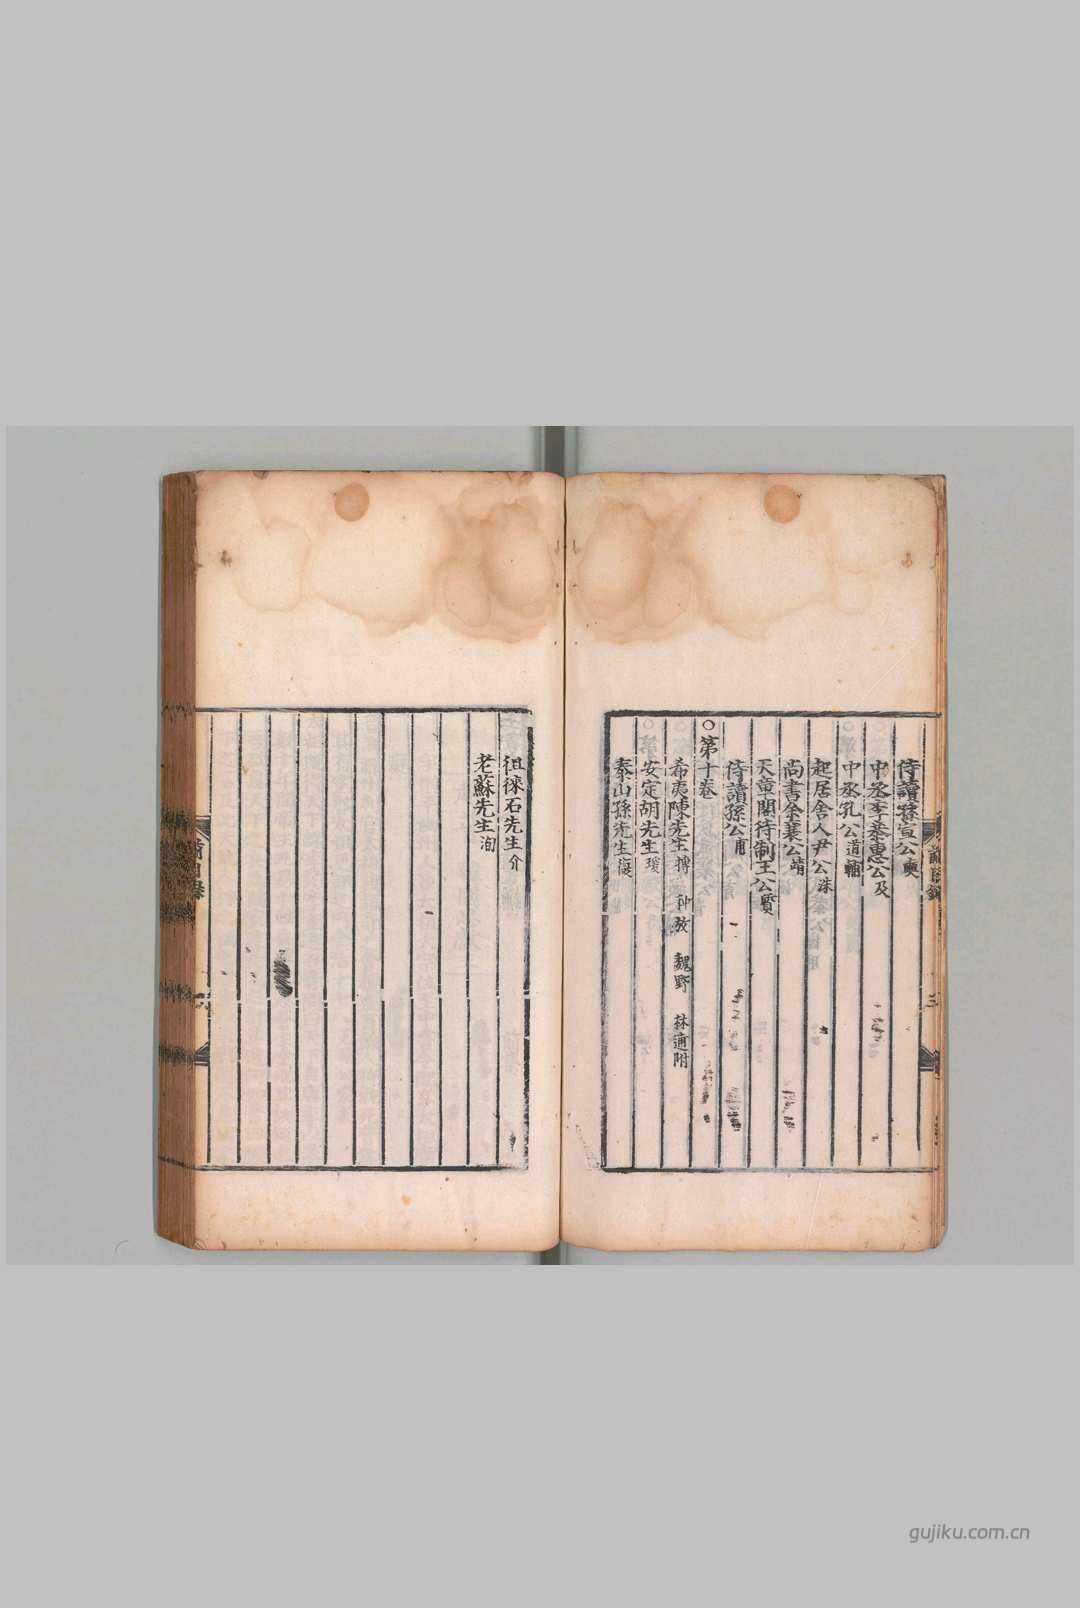 侍讀孫宣公奭
中丞李恭惠公及
中丞孔公道輔
起居舍人尹公洙
尚書余襄公靖
天章閣待制王公質
侍讀孫公甫
○第十卷
希夷陳先生摶 种放 魏野 林逋附
安定胡先生瑗
泰山孫先生復
徂徠石先生介
老蘇先生洵
gujiku.com.cn